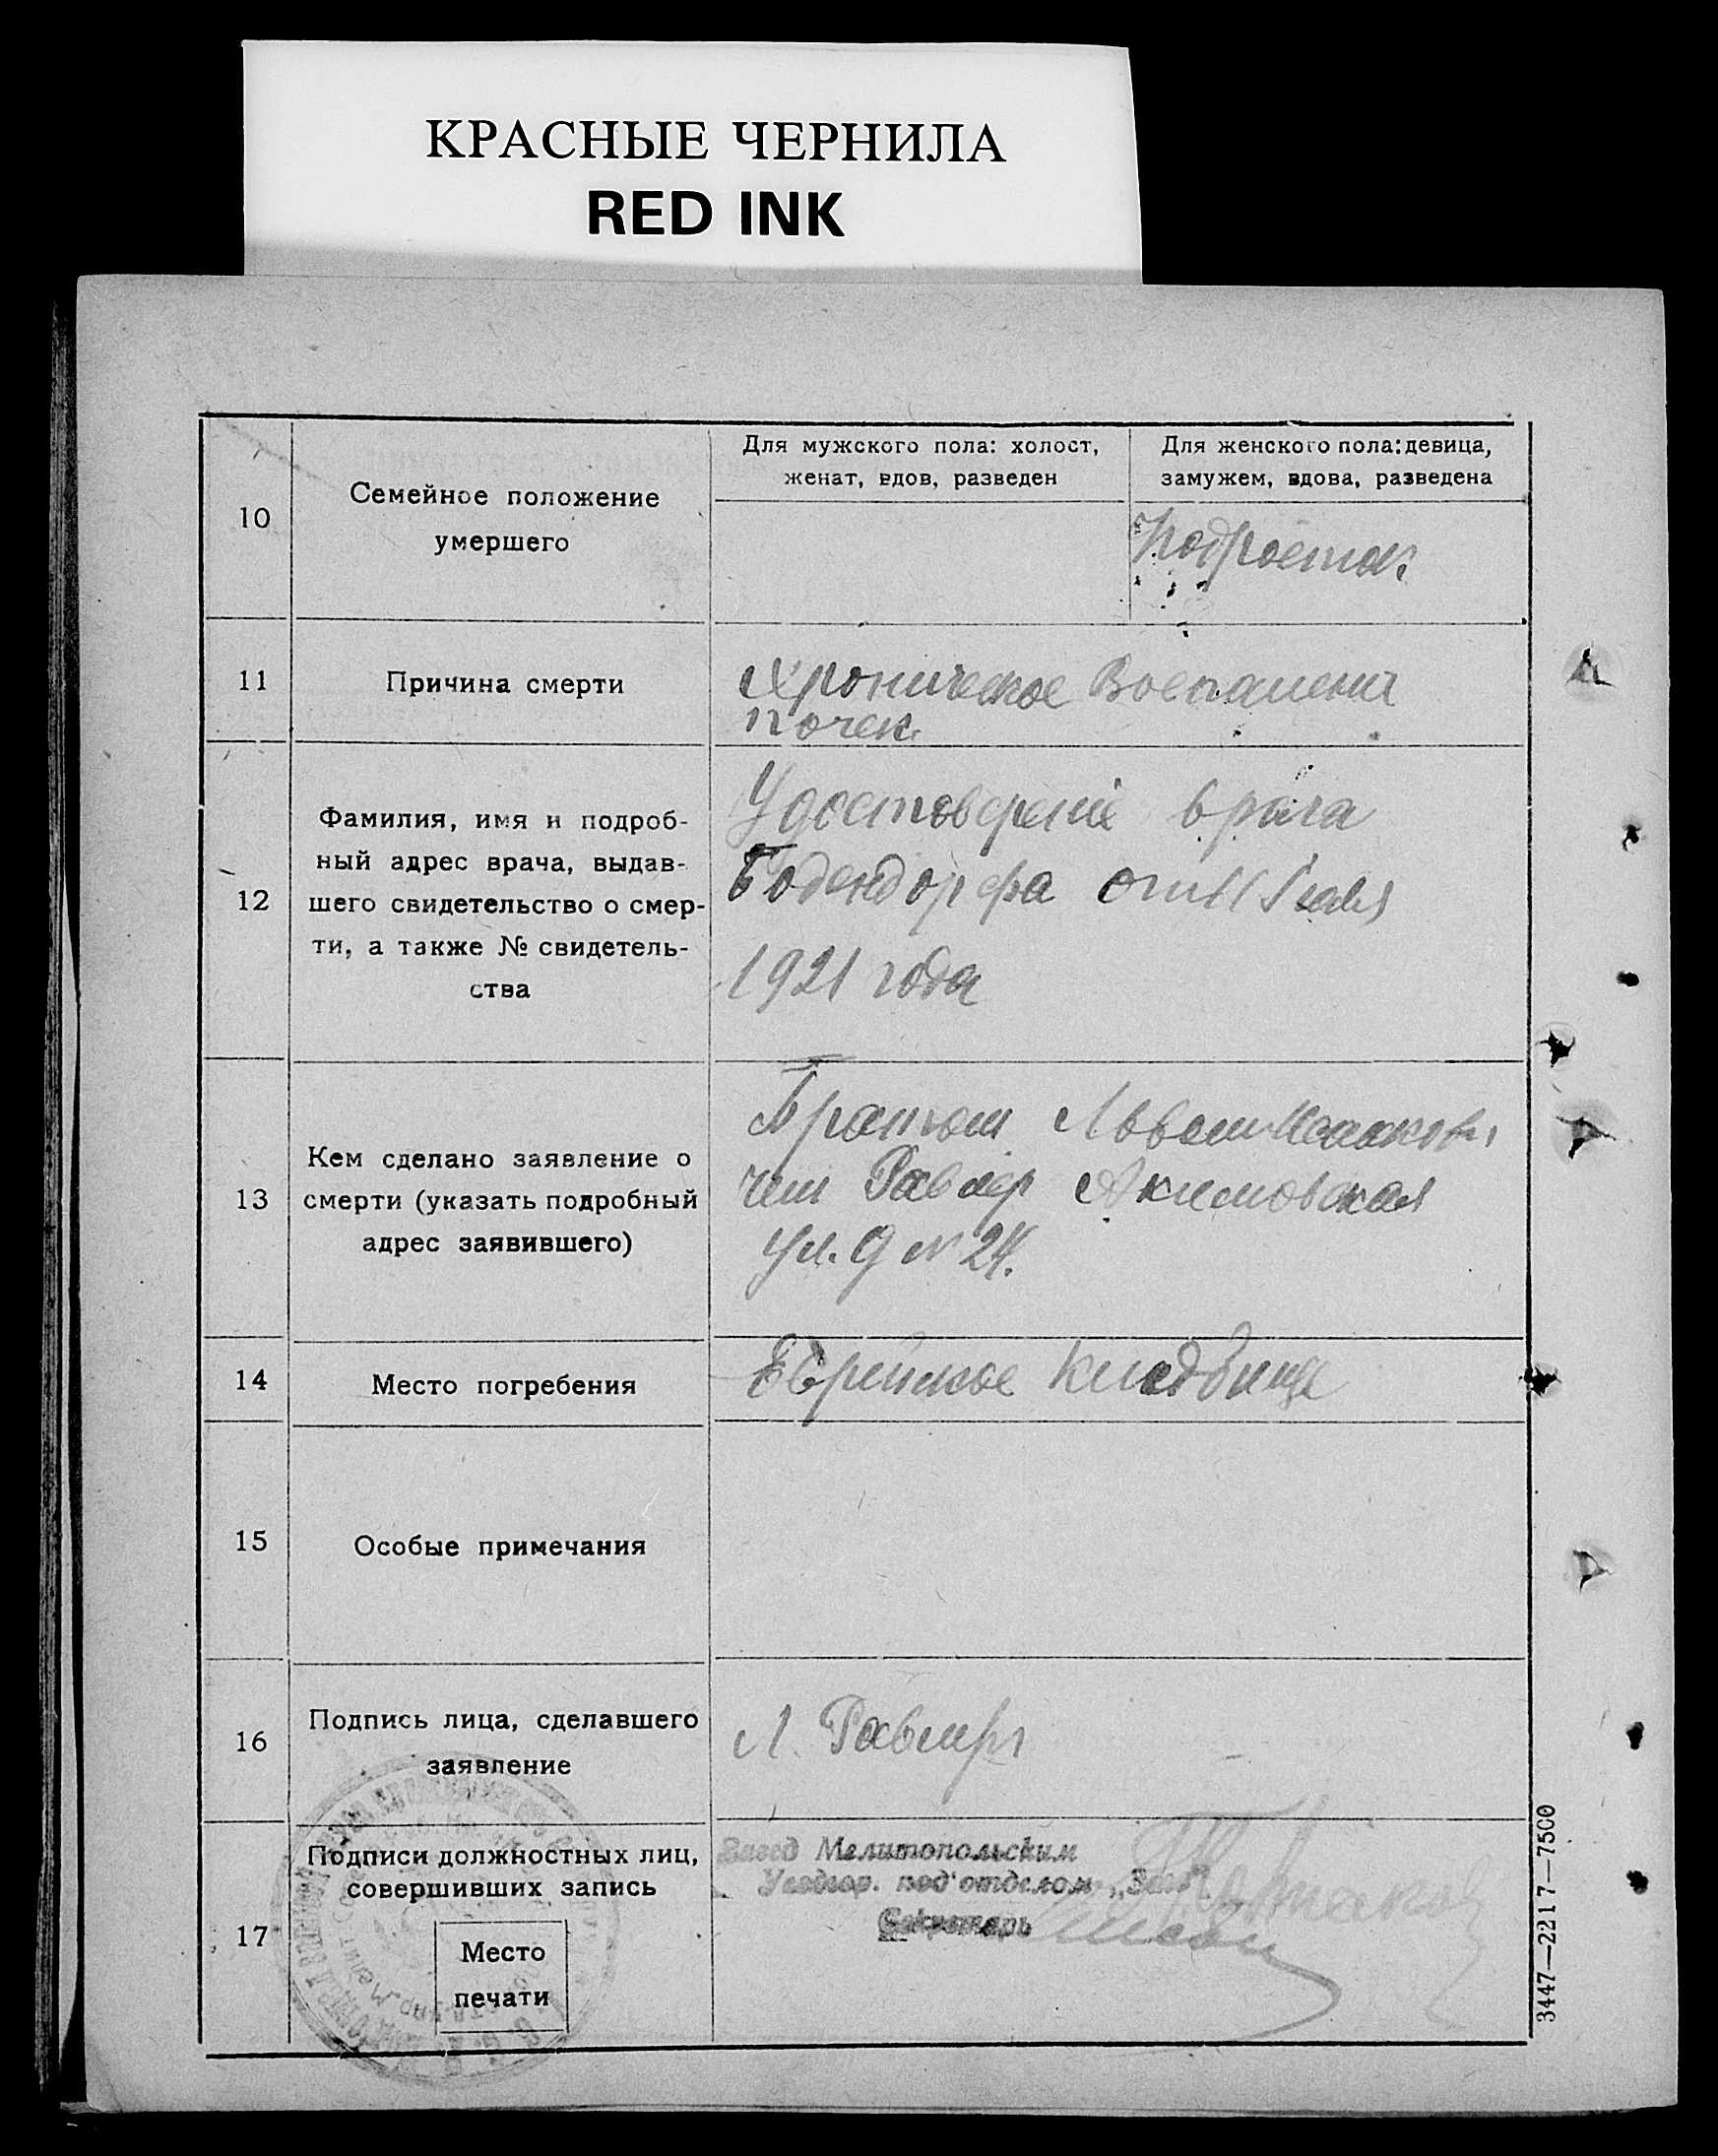 КРАСНЫЕ ЧЕРНИЛА
RED INK
10
Семейное положение
умершего
Для мужского пола: холост,
женат, вдов, разведен
Для женского пола: девица,
замужем, вдова, разведена
Подросток
11
Причина смерти
Хроническое Воспаление
почек
12
Фамилия, имя и подроб-
ный адрес врача, выдав-
шего свидетельство о смер-
ти, а также № свидетель-
ства
Удостоверение врача
Бодендорфа от
1921 года
13
Кем сделано заявление о
смерти (указать подробный
адрес заявившего)
Братом Львом Исаакови
чем Равлер Акимовская
ул. д № 24.
14
Место погребения
Еврейское кладбище
15
Особые примечания
16
Подпись лица, сделавшего
заявление
Л.
17
Подписи должностных лиц,
совершивших запись
Место
печати
Завед Мелитопольским
под'отделом
Секретарь
3447—2217—7500